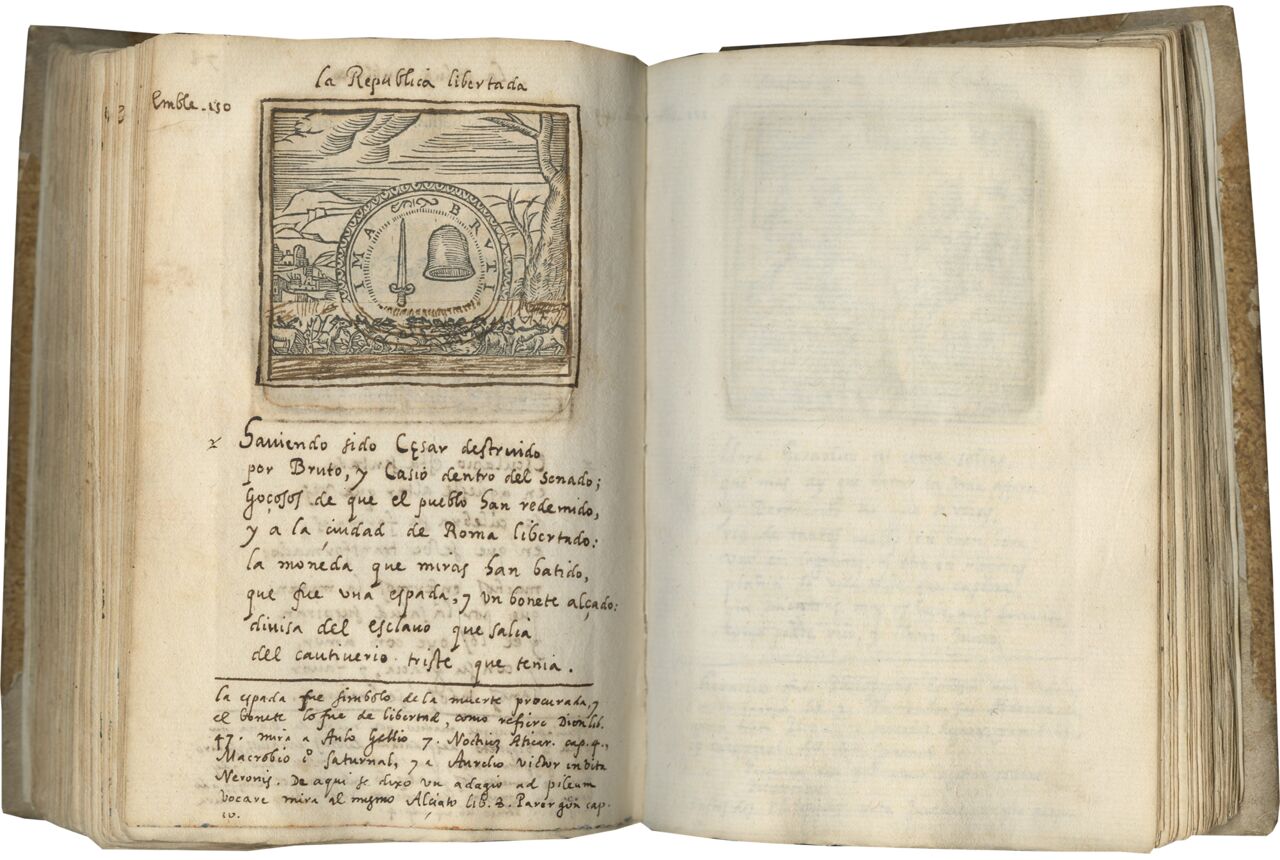 la Republica libertada
Emble. 150
IMA BRVTI
Haviendo sido Cęsar destruido
por Bruto, y Casio dentro del Senado;
Goçosos de que el pueblo han redemido,
y a la çiudad de Roma libertado:
la moneda que miras han batido,
que fue vna espada, y vn bonete alçado:
divisa del esclavo que salia
del cautiverio triste que tenia.
la espada fue simbolo de la muerte procurada, y
el bonete lo fue de libertad, como refiere Dion lib.
47. mira a Aulo Gellio 7. Noctiũ Aticar. cap. 4.,
Macrobio saturnal, y a Aurelio victor in vita
Neronis. De aqui se dixo vn adagio ad pileum
vocare mira al mysmo Alçiato lib. 2. Parergõn cap.
10.